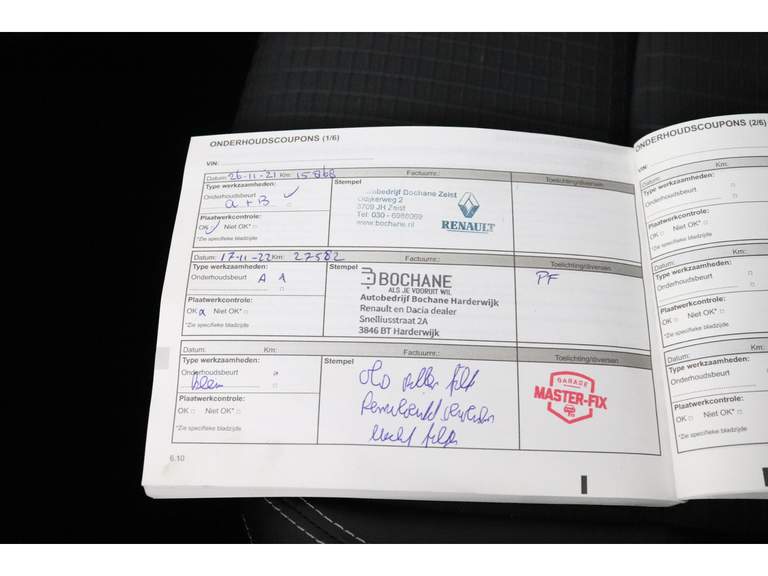 ONDERHOUDSCOUPONS (1/6)
VIN:
Datum: 26-11-21 Km: 15868 Factuurnr.: Toelichting/diversen
Type werkzaamheden: Stempel
Onderhoudsbeurt
a + B
Plaatwerkcontrole:
OK Niet OK*
*Zie specifieke bladzijde
Autobedrijf Bochane Zeist
2
3709 JH Zeist
Tel: 030 - 6988069
www.bochane.nl
RENAULT
Datum: 17-11-22 Km: 27582 Factuurnr.: Toelichting/diversen
Type werkzaamheden: Stempel
Onderhoudsbeurt A 1
Plaatwerkcontrole:
OK Niet OK*
*Zie specifieke bladzijde
BOCHANE
ALS JE VOORUIT WIL
Autobedrijf Bochane Harderwijk
Renault en Dacia dealer
Snelliusstraat 2A
3846 BT Harderwijk
PF
Datum: Km: Factuurnr.: Toelichting/diversen
Type werkzaamheden: Stempel
Onderhoudsbeurt
Plaatwerkcontrole:
OK Niet OK*
*Zie specifieke bladzijde
GARAGE
MASTER-FIX
6.10
ONDERHOUDSCOUPONS (2/6)
VIN:
Datum: Km:
Type werkzaamheden:
Onderhoudsbeurt
Plaatwerkcontrole:
OK Niet OK*
*Zie specifieke bladzijde
Datum: Km:
Type werkzaamheden:
Onderhoudsbeurt
Plaatwerkcontrole:
OK Niet OK*
*Zie specifieke bladzijde
Datum: Km:
Type werkzaamheden:
Onderhoudsbeurt
Plaatwerkcontrole:
OK Niet OK*
*Zie specifieke bladzijde